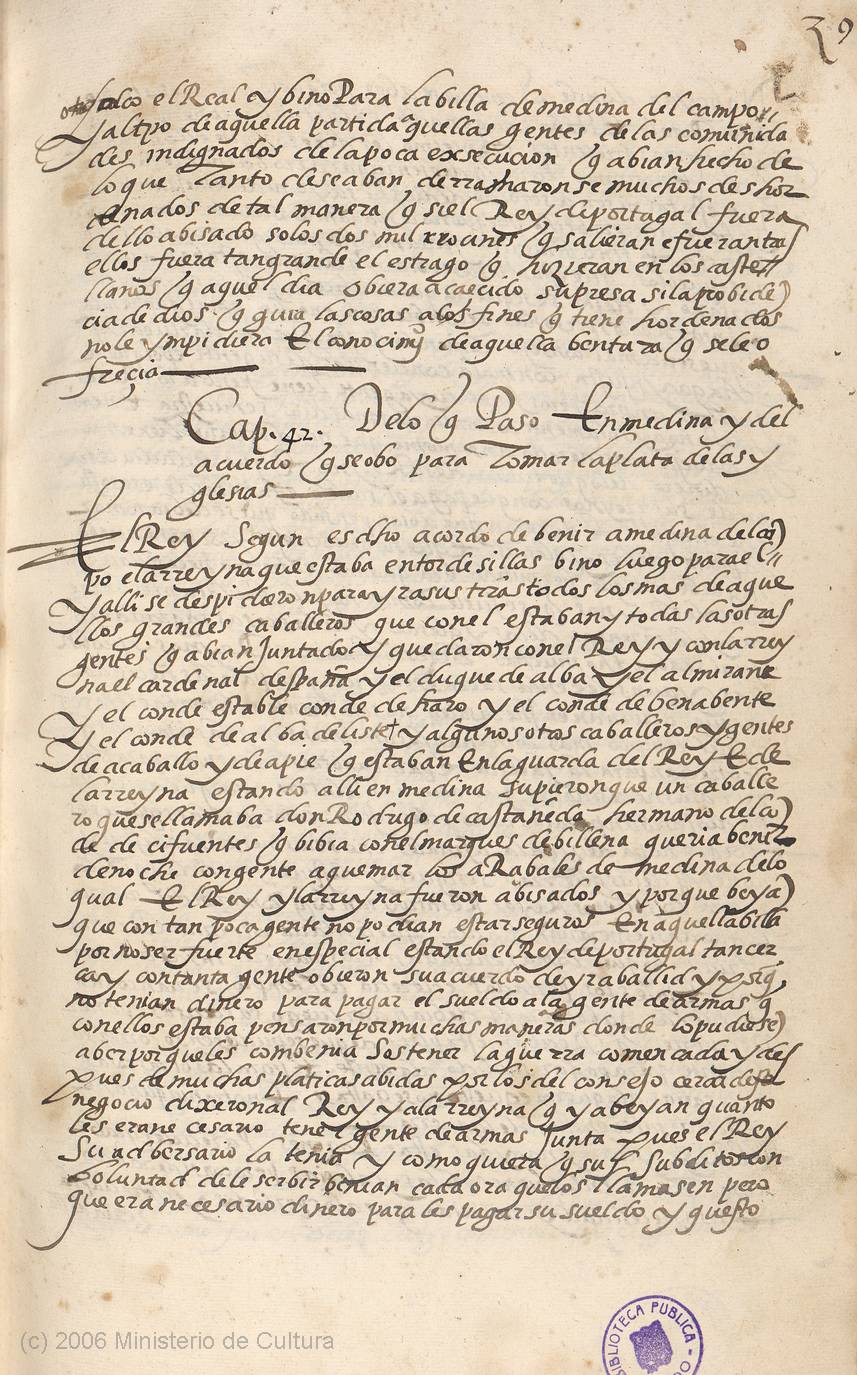 39
alço el Real y bino Para la billa de medina del campo
y al tpo de aquella partida aquellas gentes de las comunida
des indignados de la poca exsecucion q abian hecho de
lo que tanto deseaban derramaronse muchos deshor
denados de tal manera q si el Rey de portugal fuera
dello abisado solos dos mil rocines q salieran e fueran tras
ellos fuera tan grande el estrago q hizieran en los caste
llanos q aquel dia obiera acaecido su presa si la probide
cia de dios q guia las cosas a los fines q tiene hordenados
no le ympidiera El conocimjo de aquella bentura q se le o
freçia
Cap. 42. De lo q Paso En medina y del
acuerdo q se obo para Tomar la plata de las y
glesias
El Rey Segun es dho acordo de benir a medina del cā
po e la rreyna que estaba en tordesillas bino luego para el
y alli se despidieron para yr a sus trrās todos los mas de aque
llos grandes caballeros que con el estaban y todas las otras
gentes q abian Juntado y quedaron con el Rey y con la rrey
na el cardenal despaña y el duque de alba y el almirante
y el condestable conde de haro y el conde de benabente
y el conde de alba de liste y algunos otros caballeros y gentes
de a caballo y de a pie q estaban En la guarda del Rey E de
la rreyna estando alli en medina supieron que un caballe
ro que se llamaba don Rodrigo de castañeda hermano del co
de de cifuentes q bibia con el marques de billena queria benir
de noche con gente a quemar los aRabales de medina de lo
qual El Rey y la rreyna fueron abisados y porque beyā
que con tan poca gente no podian estar seguros En aquella billa
por no ser fuerte en especial estando el Rey de portugal tan cer
ca y con tanta gente obieron su acuerdo de yr a ballid y porq
no tenian dinero para pagar el sueldo a la gente de armas q
con ellos estaba pensaron por muchas maneras donde lo pudiese
aber porque les combenia Sostener la guerra comencada y des
pues de muchas platicas abidas por los del consejo cerca deste
negocio dixeron al Rey y a la rreyna q ya beyan quanto
les era necesario tener gente de armas Junta pues el Rey
Su adbersario la tenia y como quiera q sus Subditos con
boluntad de le serbir benian cada ora que los llamasen pero
que era necesario dinero para les pagar su sueldo y questo
BIBLIOTECA PUBLICA
(c) 2006 Ministerio de Cultura